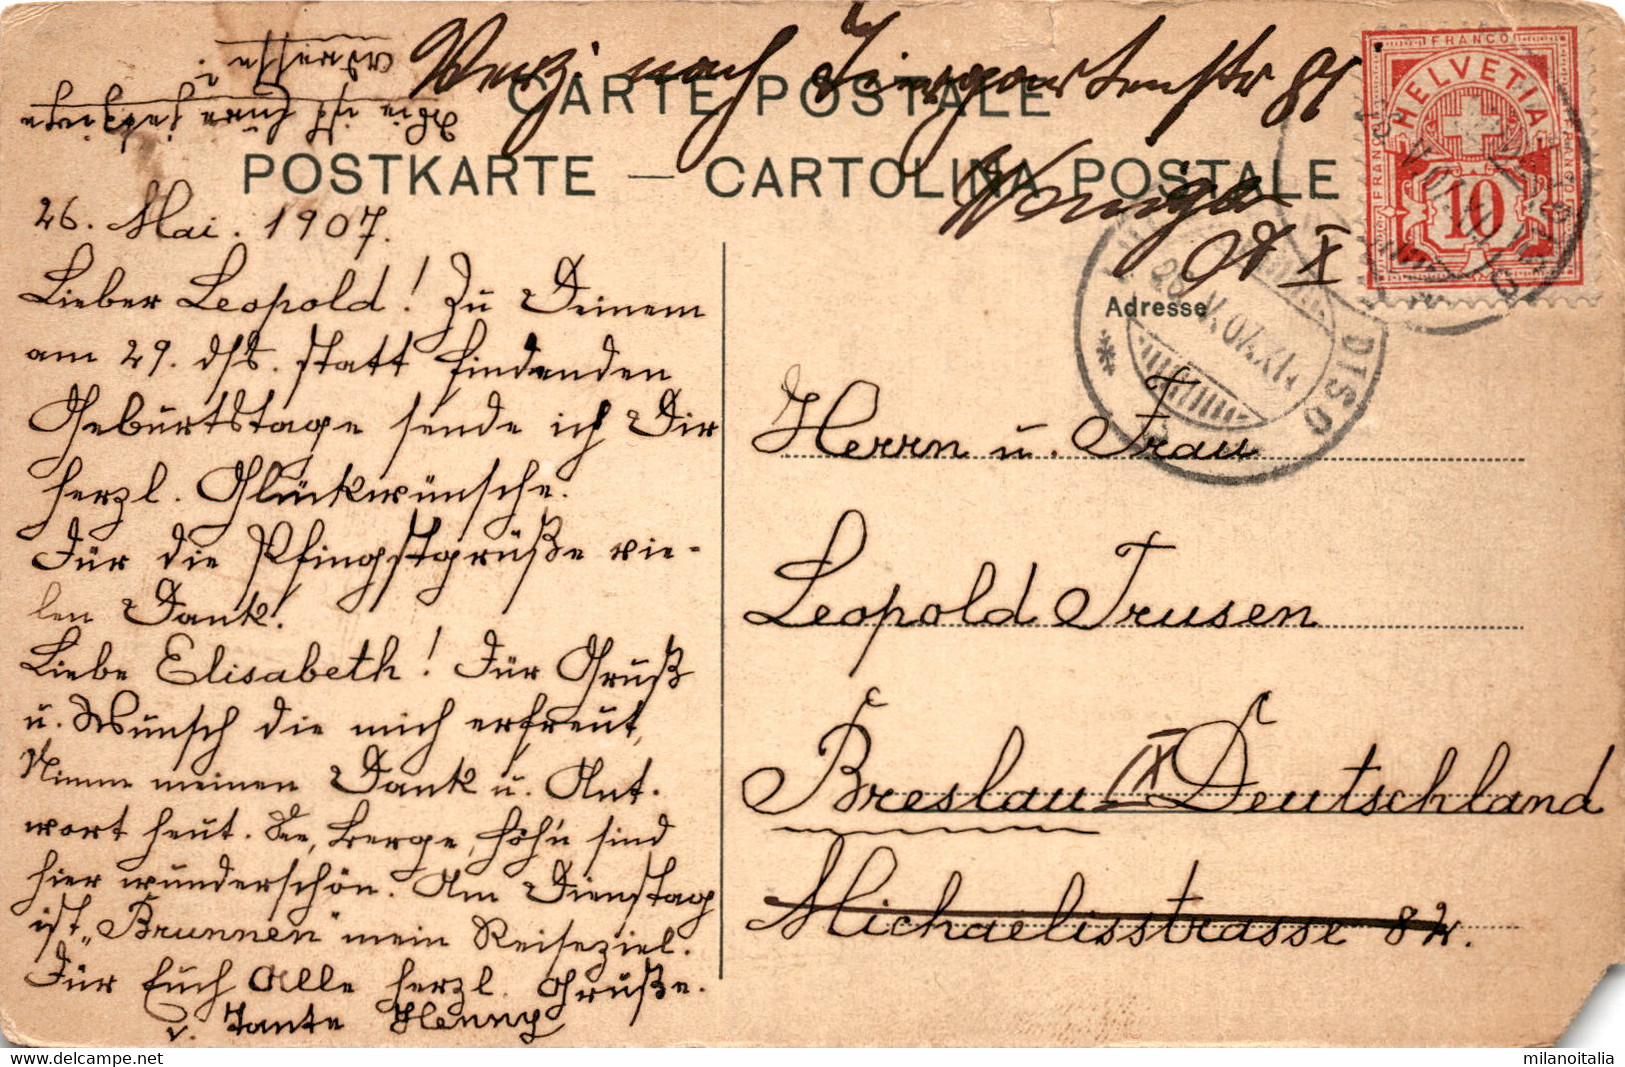 CARTE POSTALE
POSTKARTE — CARTOLINA POSTALE
Verz. nach Tiergartenstr 81
IX
Adresse
FRANCO
HELVETIA
FRANCO
FRANCO
10
DISO
26. V. 07. XI
Die ist Eure jetzige
Adresse?
26. Mai. 1907.
Lieber Leopold! Zu Deinem
am 29. dſs. statt findenden
Geburtstage sende ich Dir
herzl. Glückwünsche.
Für die Pfingstgrüße vie-
len Dank!
Liebe Elisabeth! Für Gruß
u. Wunsch die mich erfreut,
Nimm meinen Dank u. Ant.
wort heut. See, Berge, Höh'n sind
hier wunderschön. Am Dienstag
ist „Brunnen" mein Reiseziel.
Für Euch Alle herzl. Grüße.
v. Tante Henny
Herrn u. Frau
Leopold Trusen
Breslau IX Deutschland
Michaelisstrasse 84.
milanoitalia